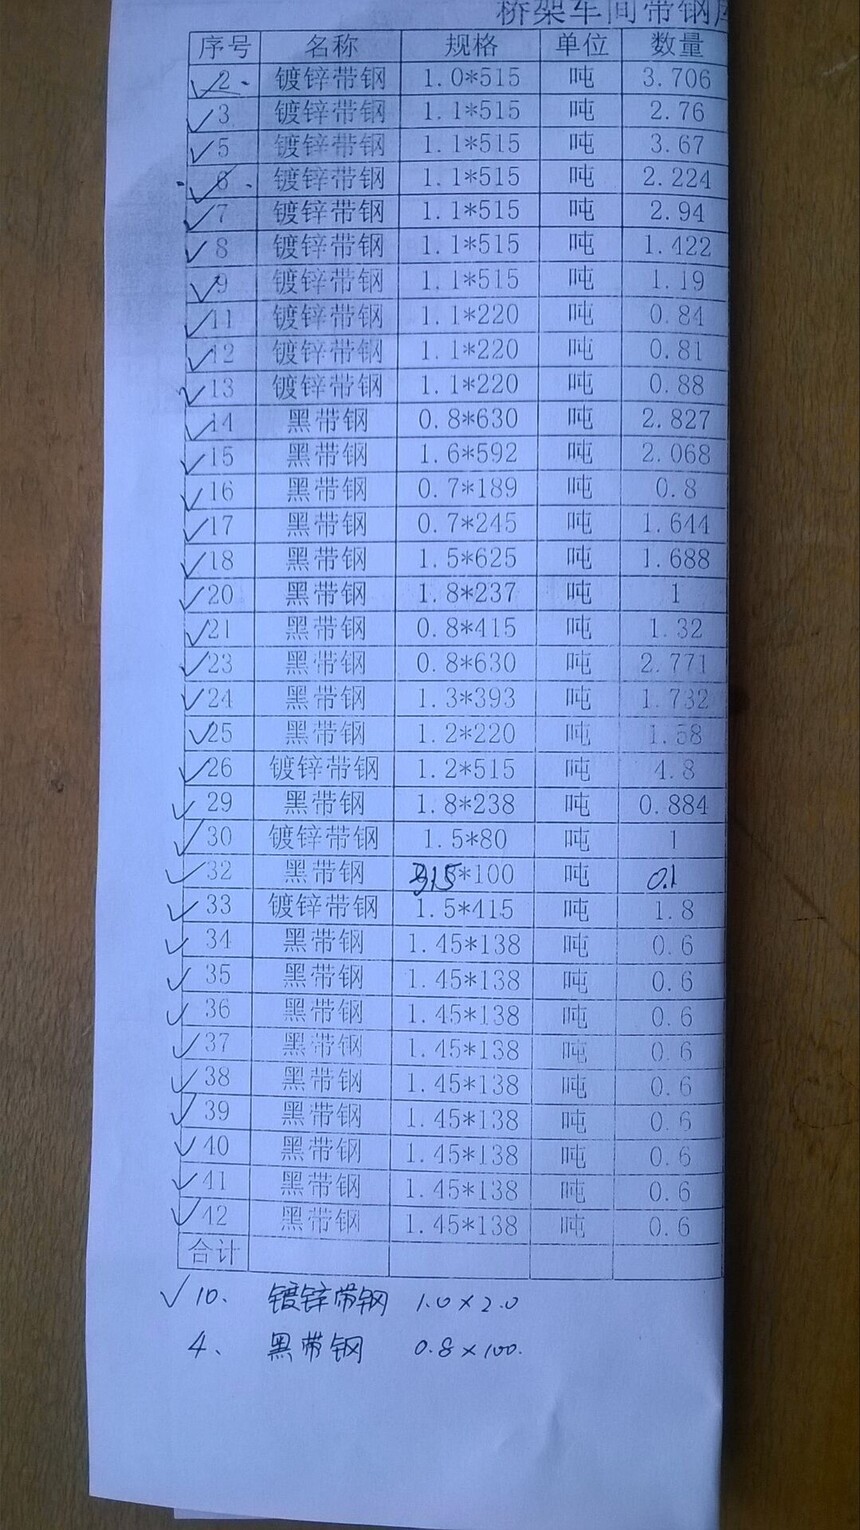 桥架车间带钢库
序号 名称 规格 单位 数量
2 镀锌带钢 1.0*515 吨 3.706
3 镀锌带钢 1.1*515 吨 2.76
5 镀锌带钢 1.1*515 吨 3.67
6 镀锌带钢 1.1*515 吨 2.224
7 镀锌带钢 1.1*515 吨 2.94
8 镀锌带钢 1.1*515 吨 1.422
9 镀锌带钢 1.1*515 吨 1.19
11 镀锌带钢 1.1*220 吨 0.84
12 镀锌带钢 1.1*220 吨 0.81
13 镀锌带钢 1.1*220 吨 0.88
14 黑带钢 0.8*630 吨 2.827
15 黑带钢 1.6*592 吨 2.068
16 黑带钢 0.7*189 吨 0.8
17 黑带钢 0.7*245 吨 1.644
18 黑带钢 1.5*625 吨 1.688
20 黑带钢 1.8*237 吨 1
21 黑带钢 0.8*415 吨 1.32
23 黑带钢 0.8*630 吨 2.771
24 黑带钢 1.3*393 吨 1.732
25 黑带钢 1.2*220 吨 1.58
26 镀锌带钢 1.2*515 吨 4.8
29 黑带钢 1.8*238 吨 0.884
30 镀锌带钢 1.5*80 吨 1
32 黑带钢 *100 吨 0.1
33 镀锌带钢 1.5*415 吨 1.8
34 黑带钢 1.45*138 吨 0.6
35 黑带钢 1.45*138 吨 0.6
36 黑带钢 1.45*138 吨 0.6
37 黑带钢 1.45*138 吨 0.6
38 黑带钢 1.45*138 吨 0.6
39 黑带钢 1.45*138 吨 0.6
40 黑带钢 1.45*138 吨 0.6
41 黑带钢 1.45*138 吨 0.6
42 黑带钢 1.45*138 吨 0.6
合计
10、 镀锌带钢 1.0×2.0
4、 黑带钢 0.8×100.